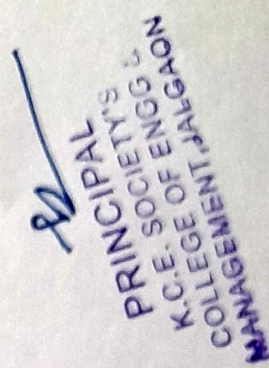 PRINCIPAL
K.C.E. SOCIETY'S
COLLEGE OF ENGG &
MANAGEMENT, JALGAON